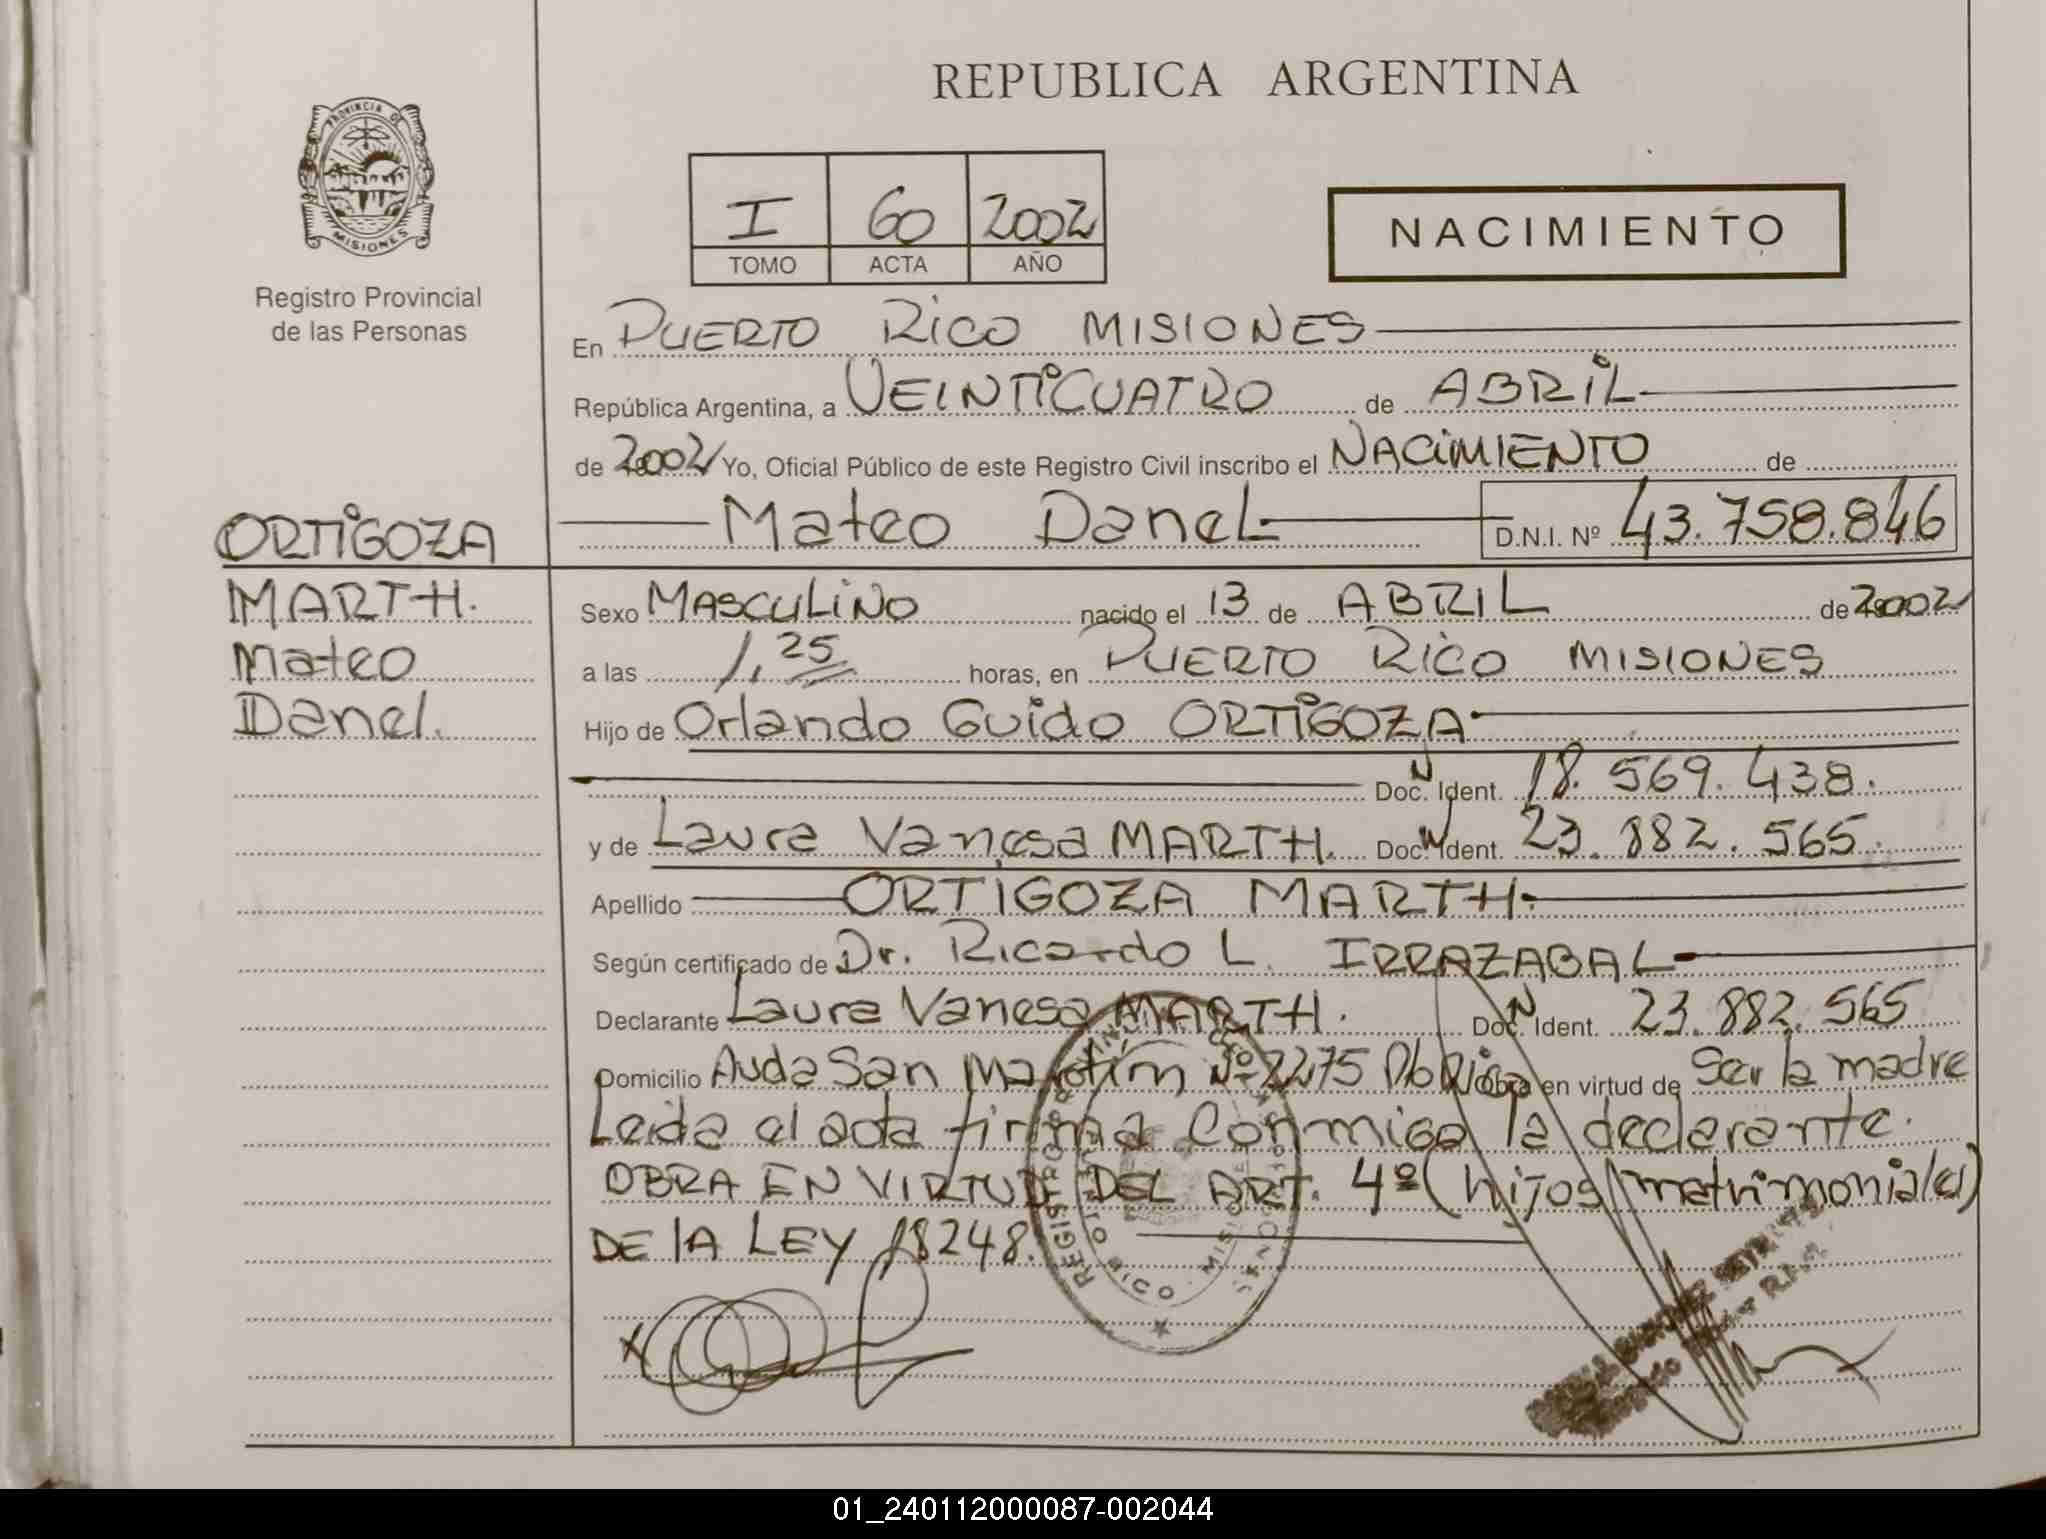 REPUBLICA ARGENTINA
PROVINCIA DE
MISIONES
Registro Provincial
de las Personas
I 60 2002
TOMO ACTA AÑO
NACIMIENTO
En PUERTO RICO MISIONES
República Argentina, a VEINTICUATRO de ABRIL
de 2002 Yo, Oficial Público de este Registro Civil inscribo el NACIMIENTO de
Mateo Danel D.N.I. Nº 43.758.846
ORTIGOZA
MARTH.
Mateo
Danel.
Sexo MASCULINO nacido el 13 de ABRIL de 2002
a las 1,25 horas, en PUERTO RICO MISIONES
Hijo de Orlando Guido ORTIGOZA
Doc. N Ident. 18.569.438.
y de Laura Vanesa MARTH. Doc. N Ident. 23.882.565.
Apellido ORTIGOZA MARTH.
Según certificado de Dr. Ricardo L. IRRAZABAL
Declarante Laura Vanesa MARTH. Doc. N Ident. 23.882.565
Domicilio Avda San Martín Nº 2275 Pto Rico obra en virtud de Ser la madre
Leida el acta firma conmigo la declarante.
OBRA EN VIRTUD DEL ART. 4º (hijos matrimoniales)
DE lA LEY 18248.
01_240112000087-002044